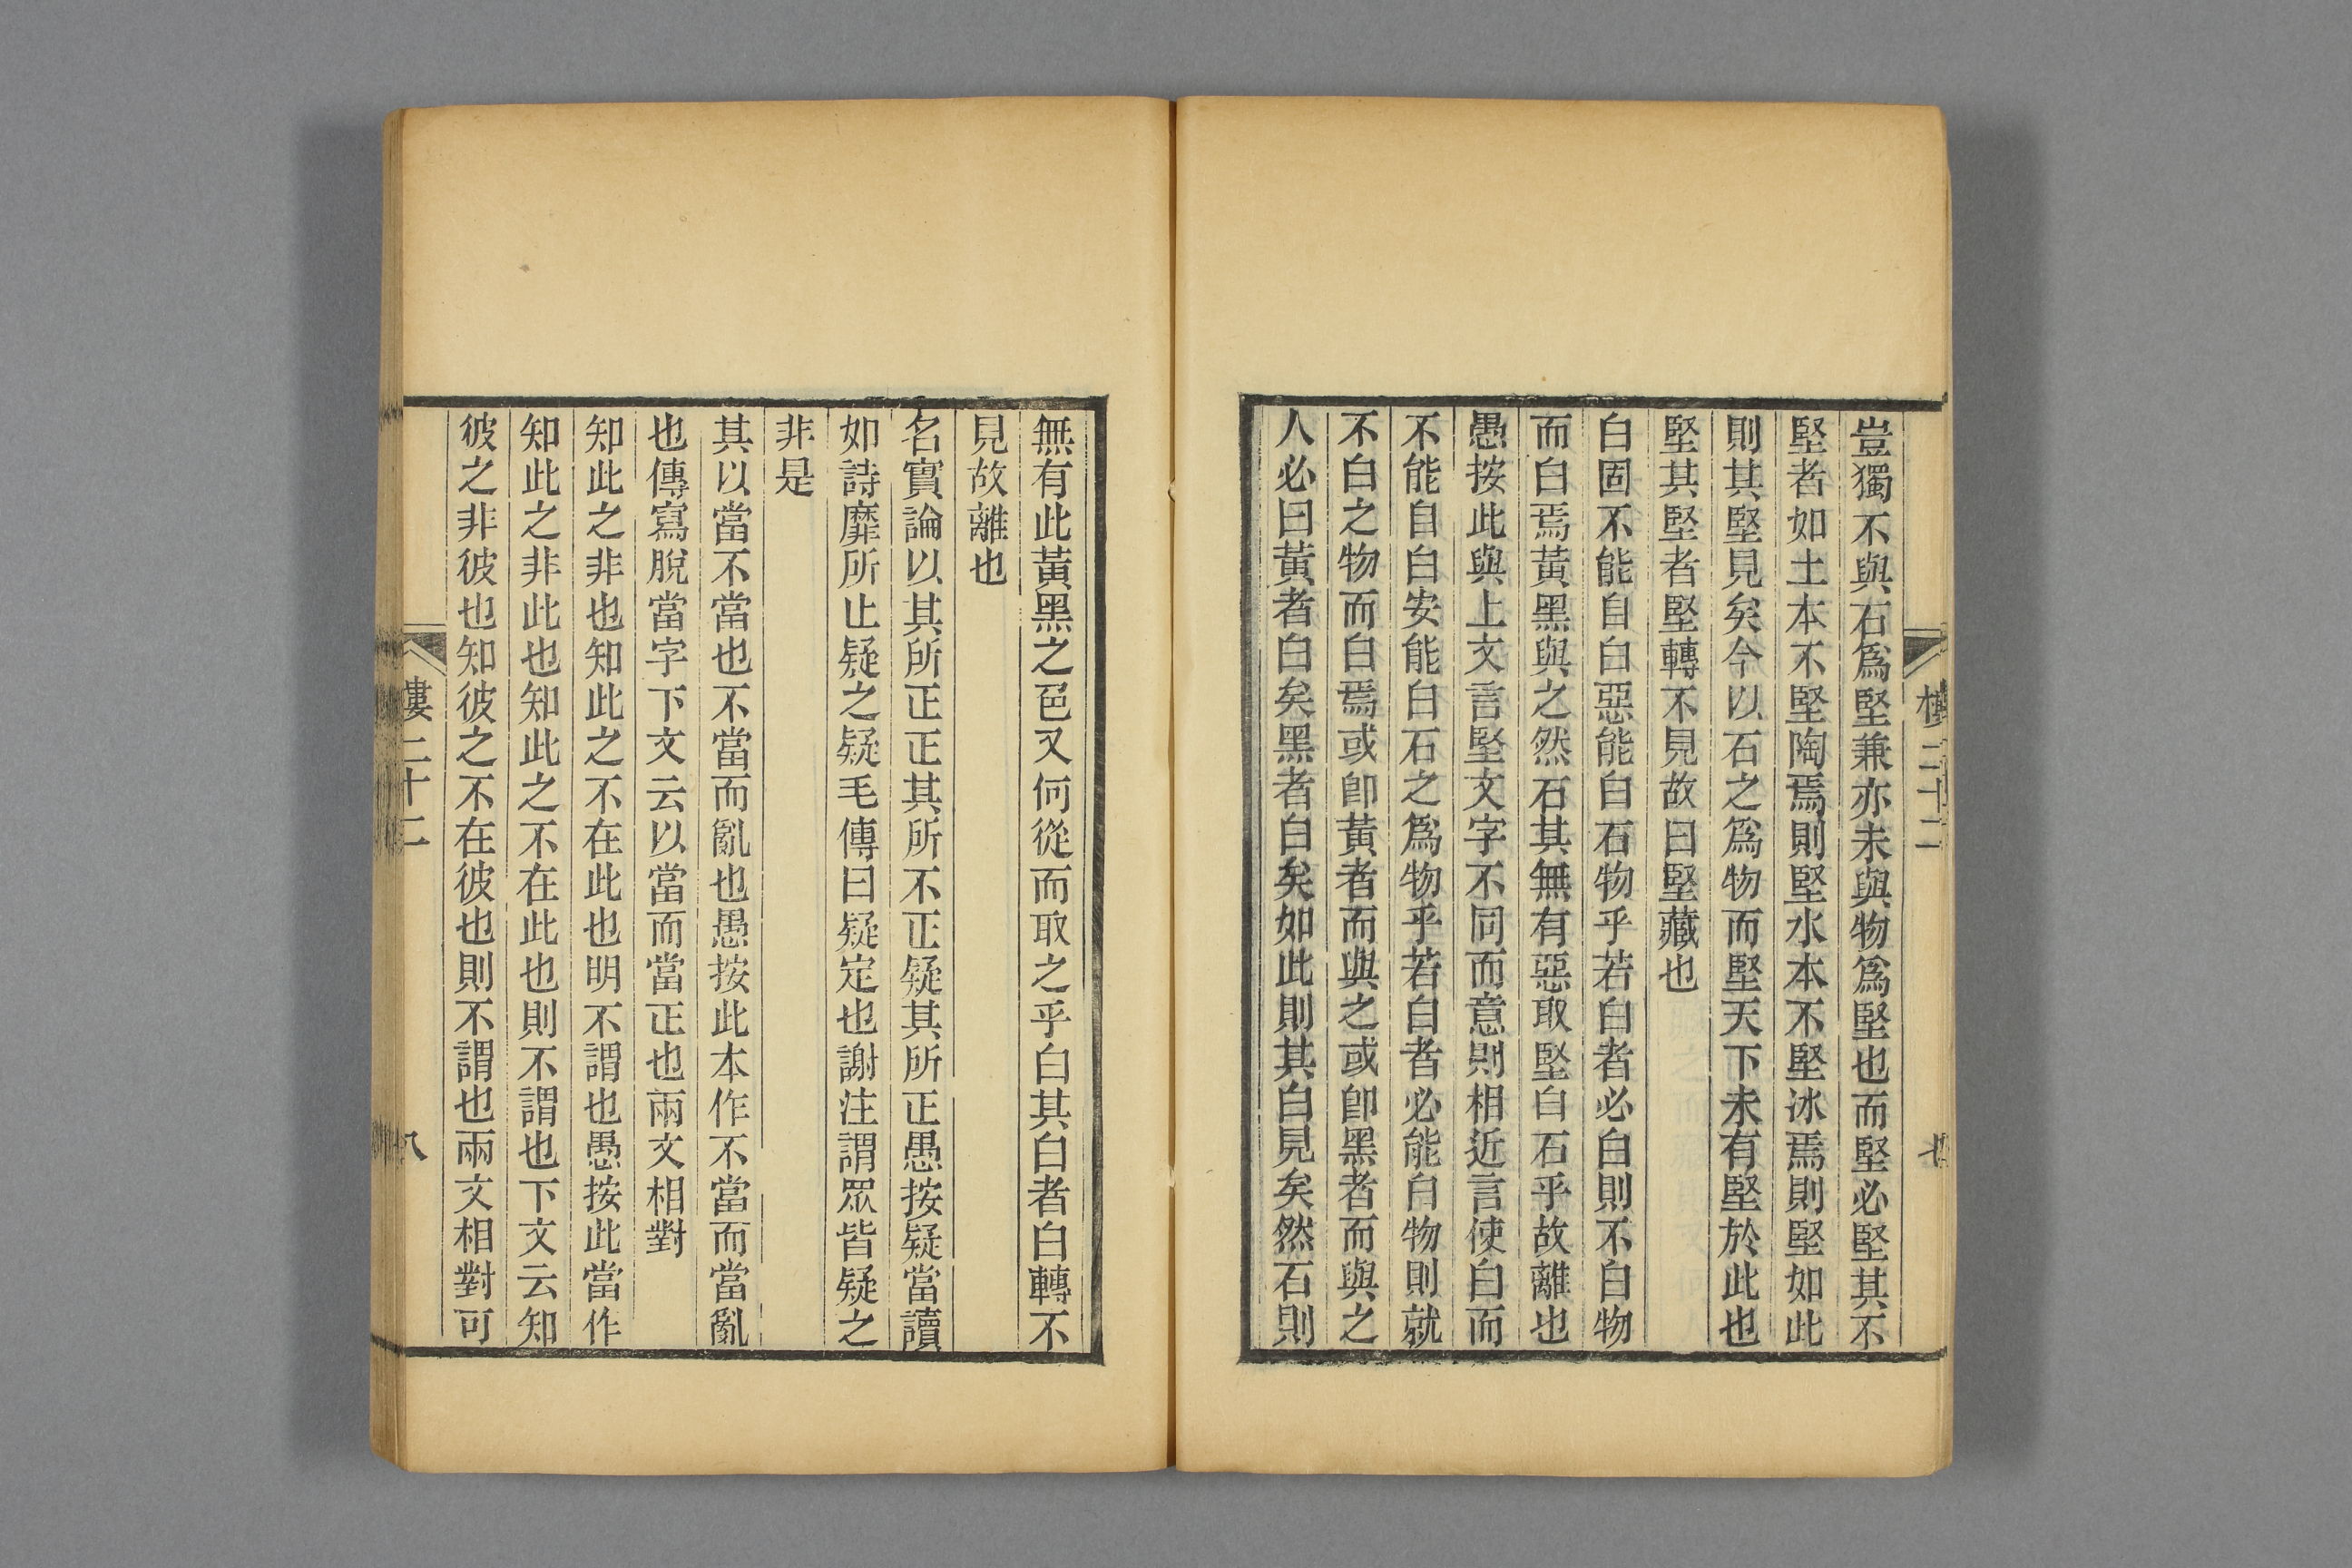 豈獨不與石爲堅兼亦未與物爲堅也而堅必堅其不
堅者如土本不堅陶焉則堅水本不堅冰焉則堅如此
則其堅見矣今以石之爲物而堅天下未有堅於此也
堅其堅者堅轉不見故曰堅藏也
白固不能自白惡能白石物乎若白者必白則不白物
而白焉黃黑與之然石其無有惡取堅白石乎故離也
愚按此與上文言堅文字不同而意則相近言使白而
不能自白安能白石之爲物乎若白者必能白物則就
不白之物而白焉或卽黃者而與之或卽黑者而與之
人必曰黃者白矣黑者白矣如此則其白見矣然石則
無有此黃黑之色又何從而取之乎白其白者白轉不
見故離也
名實論以其所正正其所不正疑其所正愚按疑當讀
如詩靡所止疑之疑毛傳曰疑定也謝注謂眾皆疑之
非是
其以當不當也不當而亂也愚按此本作不當而當亂
也傳寫脫當字下文云以當而當正也兩文相對
知此之非也知此之不在此也明不謂也愚按此當作
知此之非此也知此之不在此也則不謂也下文云知
彼之非彼也知彼之不在彼也則不謂也兩文相對可
樓二十二
八